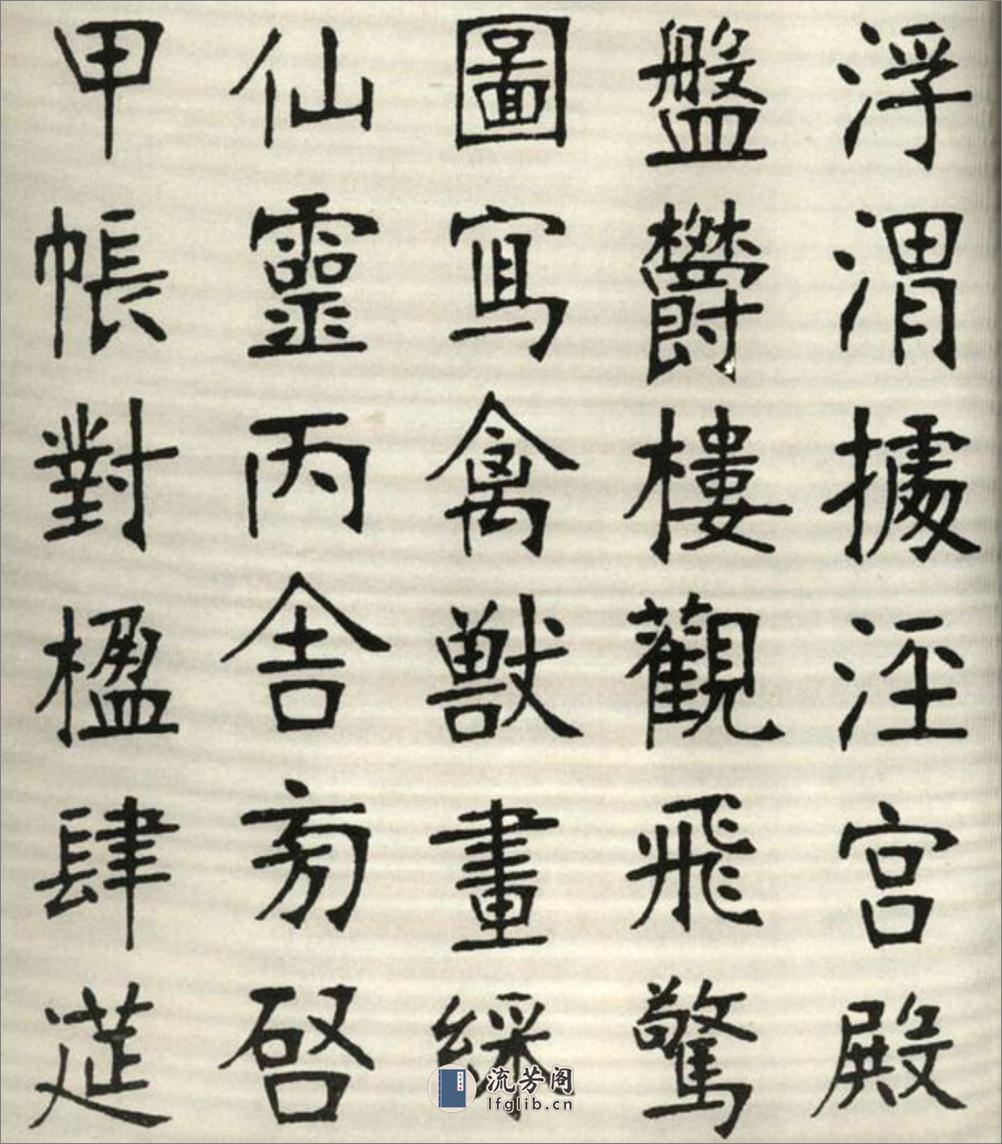 浮渭據涇宮殿
盤鬱樓觀飛驚
圖寫禽獸畫綵
仙靈丙舍旁啓
甲帳對楹肆筵
流芳阁
lfglib.cn